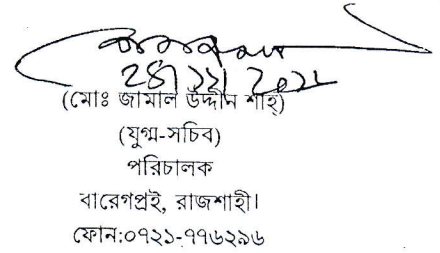 (মোঃ জামাল উদ্দীন শাহ্)
(যুগ্ম-সচিব)
পরিচালক
বারেগপ্রই, রাজশাহী।
ফোন:০৭২১-৭৭৬২৯৬